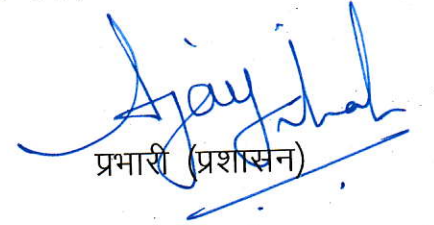 Ajay
प्रभारी (प्रशासन)